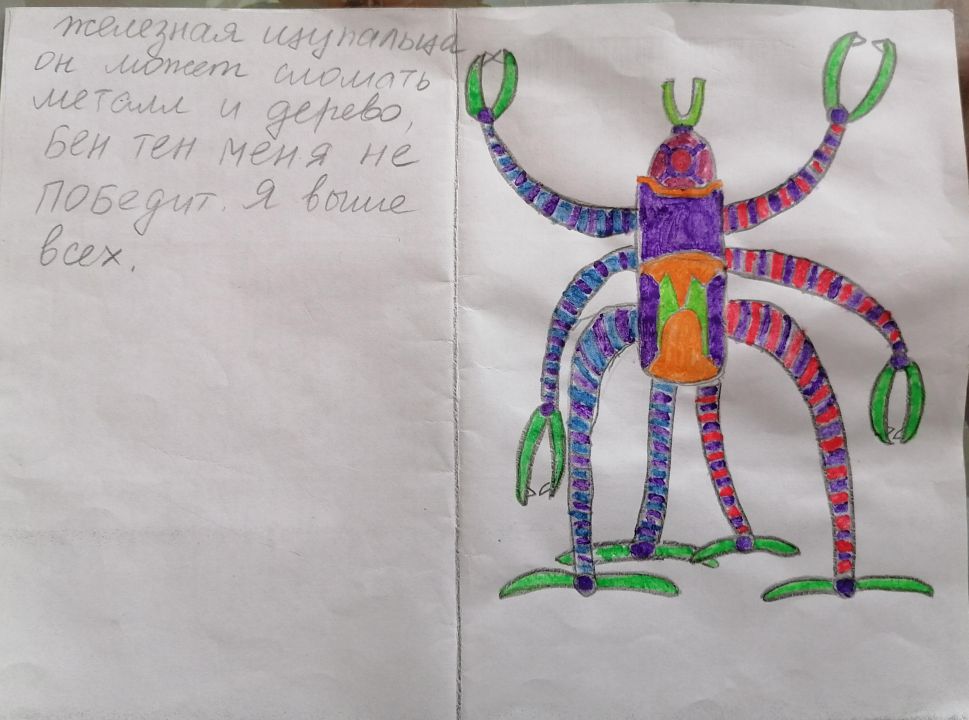 железная щупальца
он может сломать
металл и дерево,
Бен тен меня не
победит. Я выше
всех.